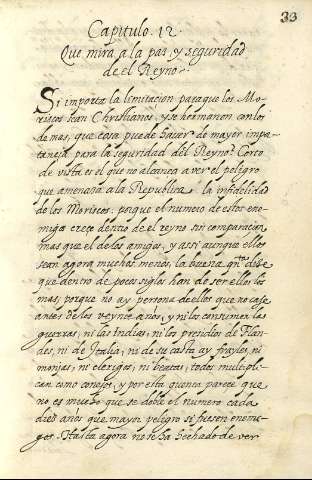 33
Capitulo. 12
Que mira a la paz y seguridad
de el Reyno.
Si importa la limitacion para que los Mo-
riscos sean Christianos, y se hermanen con los
demas, que cosa puede hacer de mayor impor-
tancia para la seguridad del Reyno? Corto
de vista es el que no alcanza a ver el peligro
que amenaza a la Republica la infidelidad
de los Moriscos. porque el numero de estos ene-
migos creçe dentro de el reyno sin comparacion
mas que el de los amigos, y assi aunque ellos
sean agora muchos menos, la buena qta dice
que dentro de pocos siglos han de ser ellos los
mas, porque no ay persona de ellos que no case
antes de los veynte años, y ni los consumen las
guerras, ni las Indias, ni los presidios de Flan-
des, ni de Italia, ni de su casta ay frayles, ni
monjas, ni clerigos, ni beatas, todos multipli-
can como conejos, y por esta quenta parece que
no es mucho que se doble el numero cada
diez años que mayor peligro si fuesen enemi-
gos. Hasta agora no se ha hechado de ver